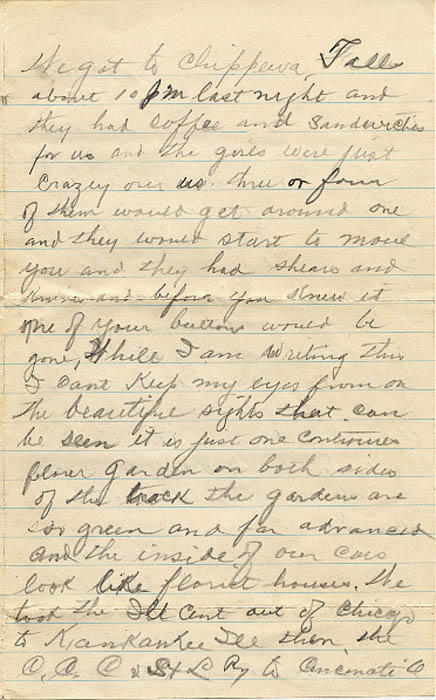 We got to Chippewa Falls
about 10 PM last night and
they had coffee and sandwiches
for us and the girls were just
crazey over us. three or four
of them would get around one
and they would start to move
you and they had shears and
knives and before you knew it
one of your buttons would be
gone, While I am writing this
I cant Keep my eyes from on
the beautiful sights that can
be seen it is just one continues
flower garden on both sides
of the track the gardens are
so green and far advanced
and the inside of our cars
look like florist houses. We
took the Ill Cent out of Chicago
to Kankankee Ill then the
C. C. C & St L Ry to Cincinati O